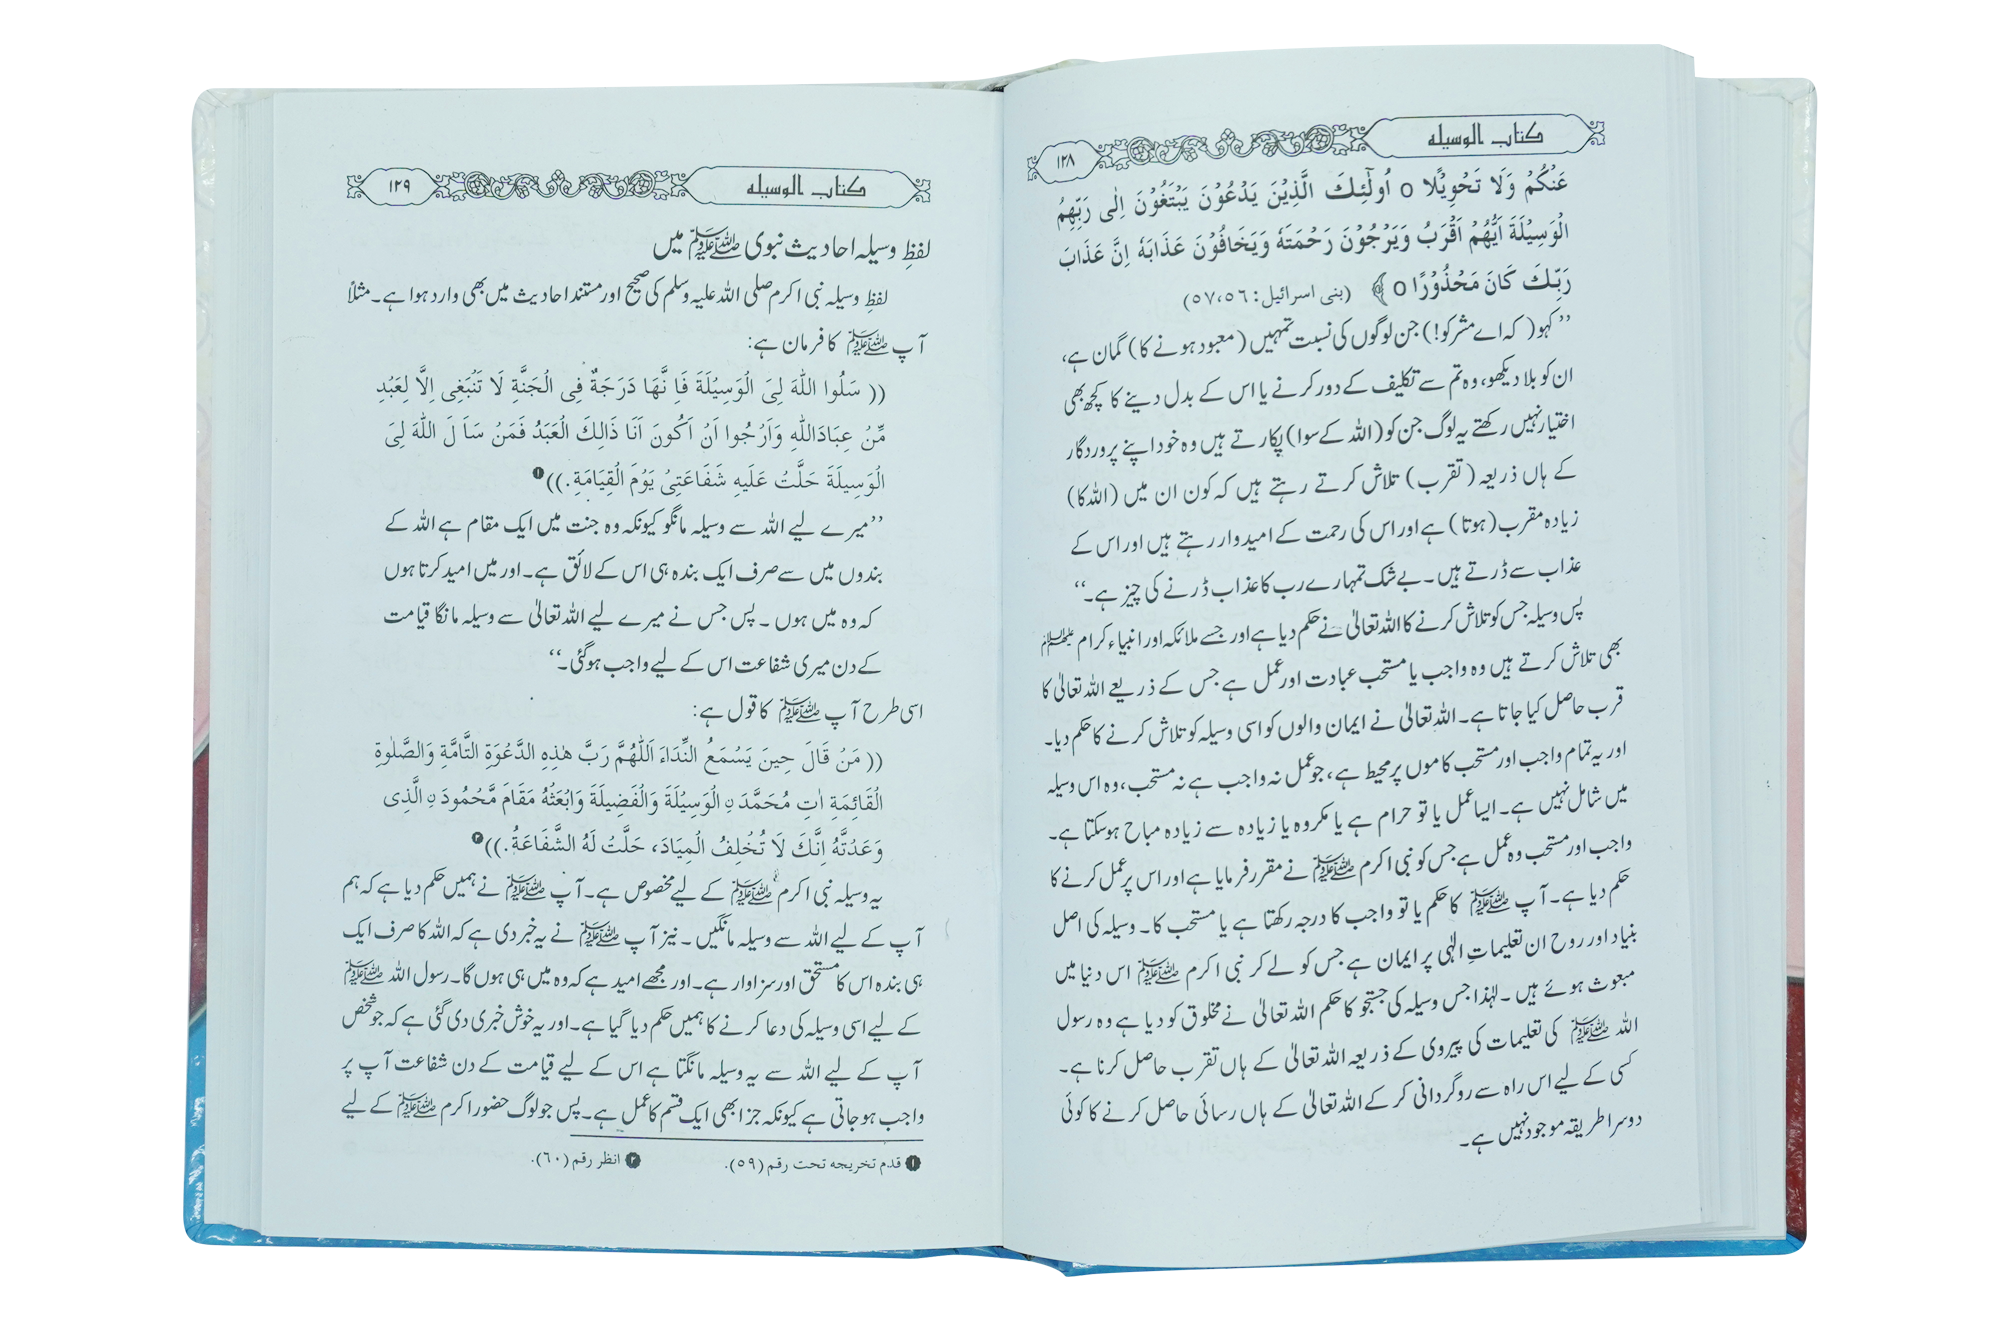 کتاب الوسیله
۱۲۸
عَنۡکُمۡ وَلَا تَحۡوِیۡلًا o اُولٰٓئِکَ الَّذِیۡنَ یَدۡعُوۡنَ یَبۡتَغُوۡنَ اِلٰی رَبِّھِمُ
الۡوَسِیۡلَةَ اَیُّھُمۡ اَقۡرَبُ وَیَرۡجُوۡنَ رَحۡمَتَهٗ وَیَخَافُوۡنَ عَذَابَهٗ اِنَّ عَذَابَ
رَبِّکَ کَانَ مَحۡذُوۡرًا o ﴾ (بنی اسرائیل: ۵۷،۵۶)
’’کہو( کہ اے مشرکو!) جن لوگوں کی نسبت تمہیں (معبود ہونے کا) گمان ہے،
ان کو بلا دیکھو، وہ تم سے تکلیف کے دور کرنے یا اس کے بدل دینے کا کچھ بھی
اختیار نہیں رکھتے یہ لوگ جن کو (اللہ کے سوا) پکارتے ہیں وہ خود اپنے پروردگار
کے ہاں ذریعہ (تقرب) تلاش کرتے رہتے ہیں کہ کون ان میں (اللہ کا)
زیادہ مقرب (ہوتا) ہے اور اس کی رحمت کے امیدوار رہتے ہیں اور اس کے
عذاب سے ڈرتے ہیں۔ بے شک تمہارے رب کا عذاب ڈرنے کی چیز ہے۔‘‘
پس وسیلہ جس کو تلاش کرنے کا اللہ تعالیٰ نے حکم دیا ہے اور جسے ملائکہ اور انبیاء کرام علیہم السلام
بھی تلاش کرتے ہیں وہ واجب یا مستحب عبادت اور عمل ہے جس کے ذریعے اللہ تعالیٰ کا
قرب حاصل کیا جاتا ہے۔ اللہ تعالیٰ نے ایمان والوں کو اسی وسیلہ کو تلاش کرنے کا حکم دیا۔
اور یہ تمام واجب اور مستحب کاموں پر محیط ہے، جو عمل نہ واجب ہے نہ مستحب، وہ اس وسیلہ
میں شامل نہیں ہے۔ ایسا عمل یا تو حرام ہے یا مکروہ یا زیادہ سے زیادہ مباح ہو سکتا ہے۔
واجب اور مستحب وہ عمل ہے جس کو نبی اکرم ﷺ نے مقرر فرمایا ہے اور اس پر عمل کرنے کا
حکم دیا ہے۔ آپ ﷺ کا حکم یا تو واجب کا درجہ رکھتا ہے یا مستحب کا۔ وسیلہ کی اصل
بنیاد اور روح ان تعلیماتِ الٰہی پر ایمان ہے جس کو لے کر نبی اکرم ﷺ اس دنیا میں
مبعوث ہوئے ہیں۔ لہٰذا جس وسیلہ کی جستجو کا حکم اللہ تعالیٰ نے مخلوق کو دیا ہے وہ رسول
اللہ ﷺ کی تعلیمات کی پیروی کے ذریعہ اللہ تعالیٰ کے ہاں تقرب حاصل کرنا ہے۔
کسی کے لیے اس راہ سے روگردانی کر کے اللہ تعالیٰ کے ہاں رسائی حاصل کرنے کا کوئی
دوسرا طریقہ موجود نہیں ہے۔
کتاب الوسیله
۱۲۹
لفظِ وسیلہ احادیث نبوی ﷺ میں
لفظِ وسیلہ نبی اکرم صلی اللہ علیہ وسلم کی صحیح اور مستند احادیث میں بھی وارد ہوا ہے۔ مثلاً
آپ ﷺ کا فرمان ہے:
(( سَلُوا اللّٰهَ لِیَ الۡوَسِیۡلَةَ فَاِ نَّھَا دَرَجَةٌ فِی الۡجَنَّةِ لَا تَنۡبَغِی اِلَّا لِعَبۡدٍ
مِّنۡ عِبَادَاللّٰهِ وَاَرۡجُوا اَنۡ اَکُونَ اَنَا ذَالِکَ الۡعَبۡدُ فَمَنۡ سَاَ لَ اللّٰهَ لِیَ
الۡوَسِیلَةَ حَلَّتۡ عَلَیهِ شَفَاعَتِیۡ یَوۡمَ الۡقِیَامَةِ.))❶
’’میرے لیے اللہ سے وسیلہ مانگو کیونکہ وہ جنت میں ایک مقام ہے اللہ کے
بندوں میں سے صرف ایک بندہ ہی اس کے لائق ہے۔ اور میں امید کرتا ہوں
کہ وہ میں ہوں ۔ پس جس نے میرے لیے اللہ تعالیٰ سے وسیلہ مانگا قیامت
کے دن میری شفاعت اس کے لیے واجب ہو گئی۔‘‘
اسی طرح آپ ﷺ کا قول ہے:
(( مَنۡ قَالَ حِینَ یَسۡمَعُ النِّدَاءَ اَللّٰھُمَّ رَبَّ ھٰذِهِ الدَّعۡوَةِ التَّامَّةِ وَالصَّلٰوةِ
الۡقَائِمَةِ اٰتِ مُحَمَّدَ نِ الۡوَسِیۡلَةَ وَالۡفَضِیلَةَ وَابۡعَثۡهُ مَقَامَ مَّحۡمُودَ نِ الَّذِی
وَعَدۡتَّهُ اِنَّکَ لَا تُخۡلِفُ الۡمِیَادَ، حَلَّتۡ لَهُ الشَّفَاعَةُ.))❷
یہ وسیلہ نبی اکرم ﷺ کے لیے مخصوص ہے۔ آپ ﷺ نے ہمیں حکم دیا ہے کہ ہم
آپ کے لیے اللہ سے وسیلہ مانگیں۔ نیز آپ ﷺ نے یہ خبر دی ہے کہ اللہ کا صرف ایک
ہی بندہ اس کا مستحق اور سزاوار ہے۔ اور مجھے امید ہے کہ وہ میں ہی ہوں گا۔ رسول اللہ ﷺ
کے لیے اسی وسیلہ کی دعا کرنے کا ہمیں حکم دیا گیا ہے۔ اور یہ خوش خبری دی گئی ہے کہ جو شخص
آپ کے لیے اللہ سے یہ وسیلہ مانگتا ہے اس کے لیے قیامت کے دن شفاعت آپ پر
واجب ہو جاتی ہے کیونکہ جزا بھی ایک قسم کا عمل ہے۔ پس جو لوگ حضور اکرم ﷺ کے لیے
❶ قدم تخریجه تحت رقم (۵۹). ❷ انظر رقم (۶۰).